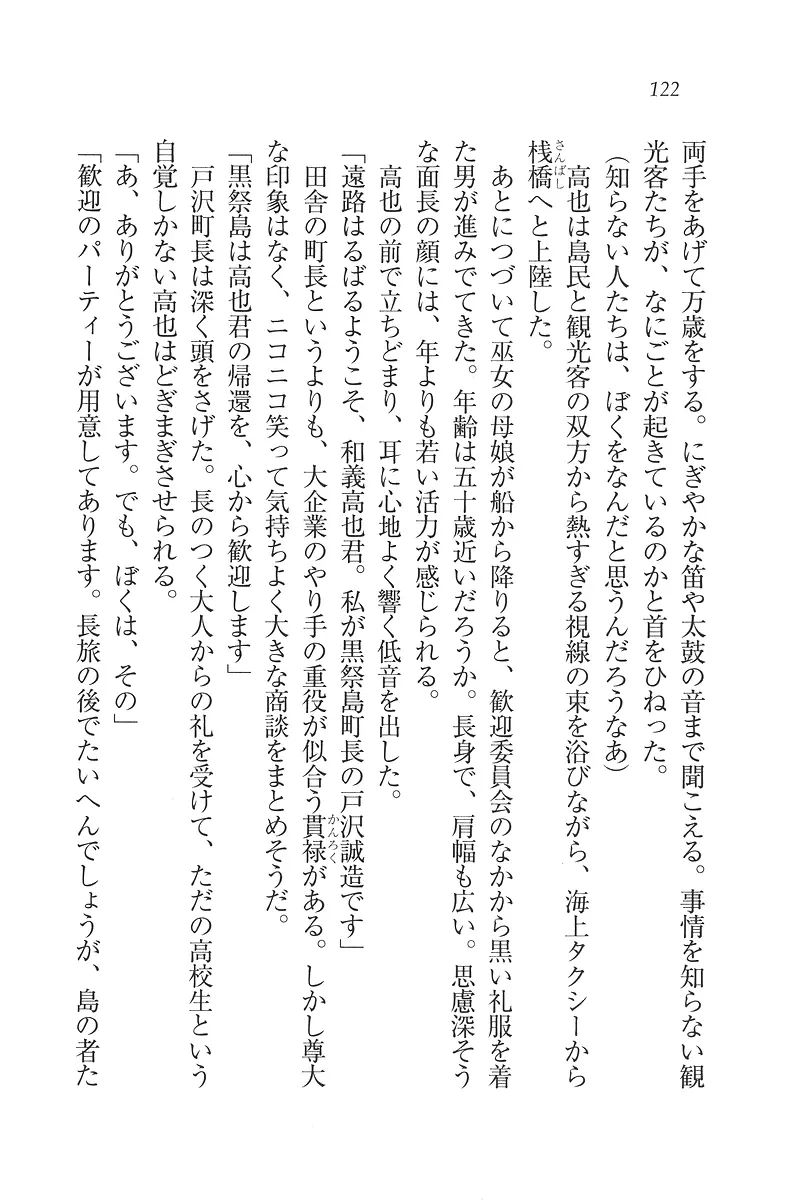 122
両手をあげて万歳をする。にぎやかな笛や太鼓の音まで聞こえる。事情を知らない観
光客たちが、なにごとが起きているのかと首をひねった。
（知らない人たちは、ぼくをなんだと思うんだろうなあ）
高也は島民と観光客の双方から熱すぎる視線の束を浴びながら、海上タクシーから
桟橋さんばしへと上陸した。
あとにつづいて巫女の母娘が船から降りると、歓迎委員会のなかから黒い礼服を着
た男が進みでてきた。年齢は五十歳近いだろうか。長身で、肩幅も広い。思慮深そう
な面長の顔には、年よりも若い活力が感じられる。
高也の前で立ちどまり、耳に心地よく響く低音を出した。
「遠路はるばるようこそ、和義高也君。私が黒祭島町長の戸沢誠造です」
田舎の町長というよりも、大企業のやり手の重役が似合う貫禄かんろくがある。しかし尊大
な印象はなく、ニコニコ笑って気持ちよく大きな商談をまとめそうだ。
「黒祭島は高也君の帰還を、心から歓迎します」
戸沢町長は深く頭をさげた。長のつく大人からの礼を受けて、ただの高校生という
自覚しかない高也はどぎまぎさせられる。
「あ、ありがとうございます。でも、ぼくは、その」
「歓迎のパーティーが用意してあります。長旅の後でたいへんでしょうが、島の者た